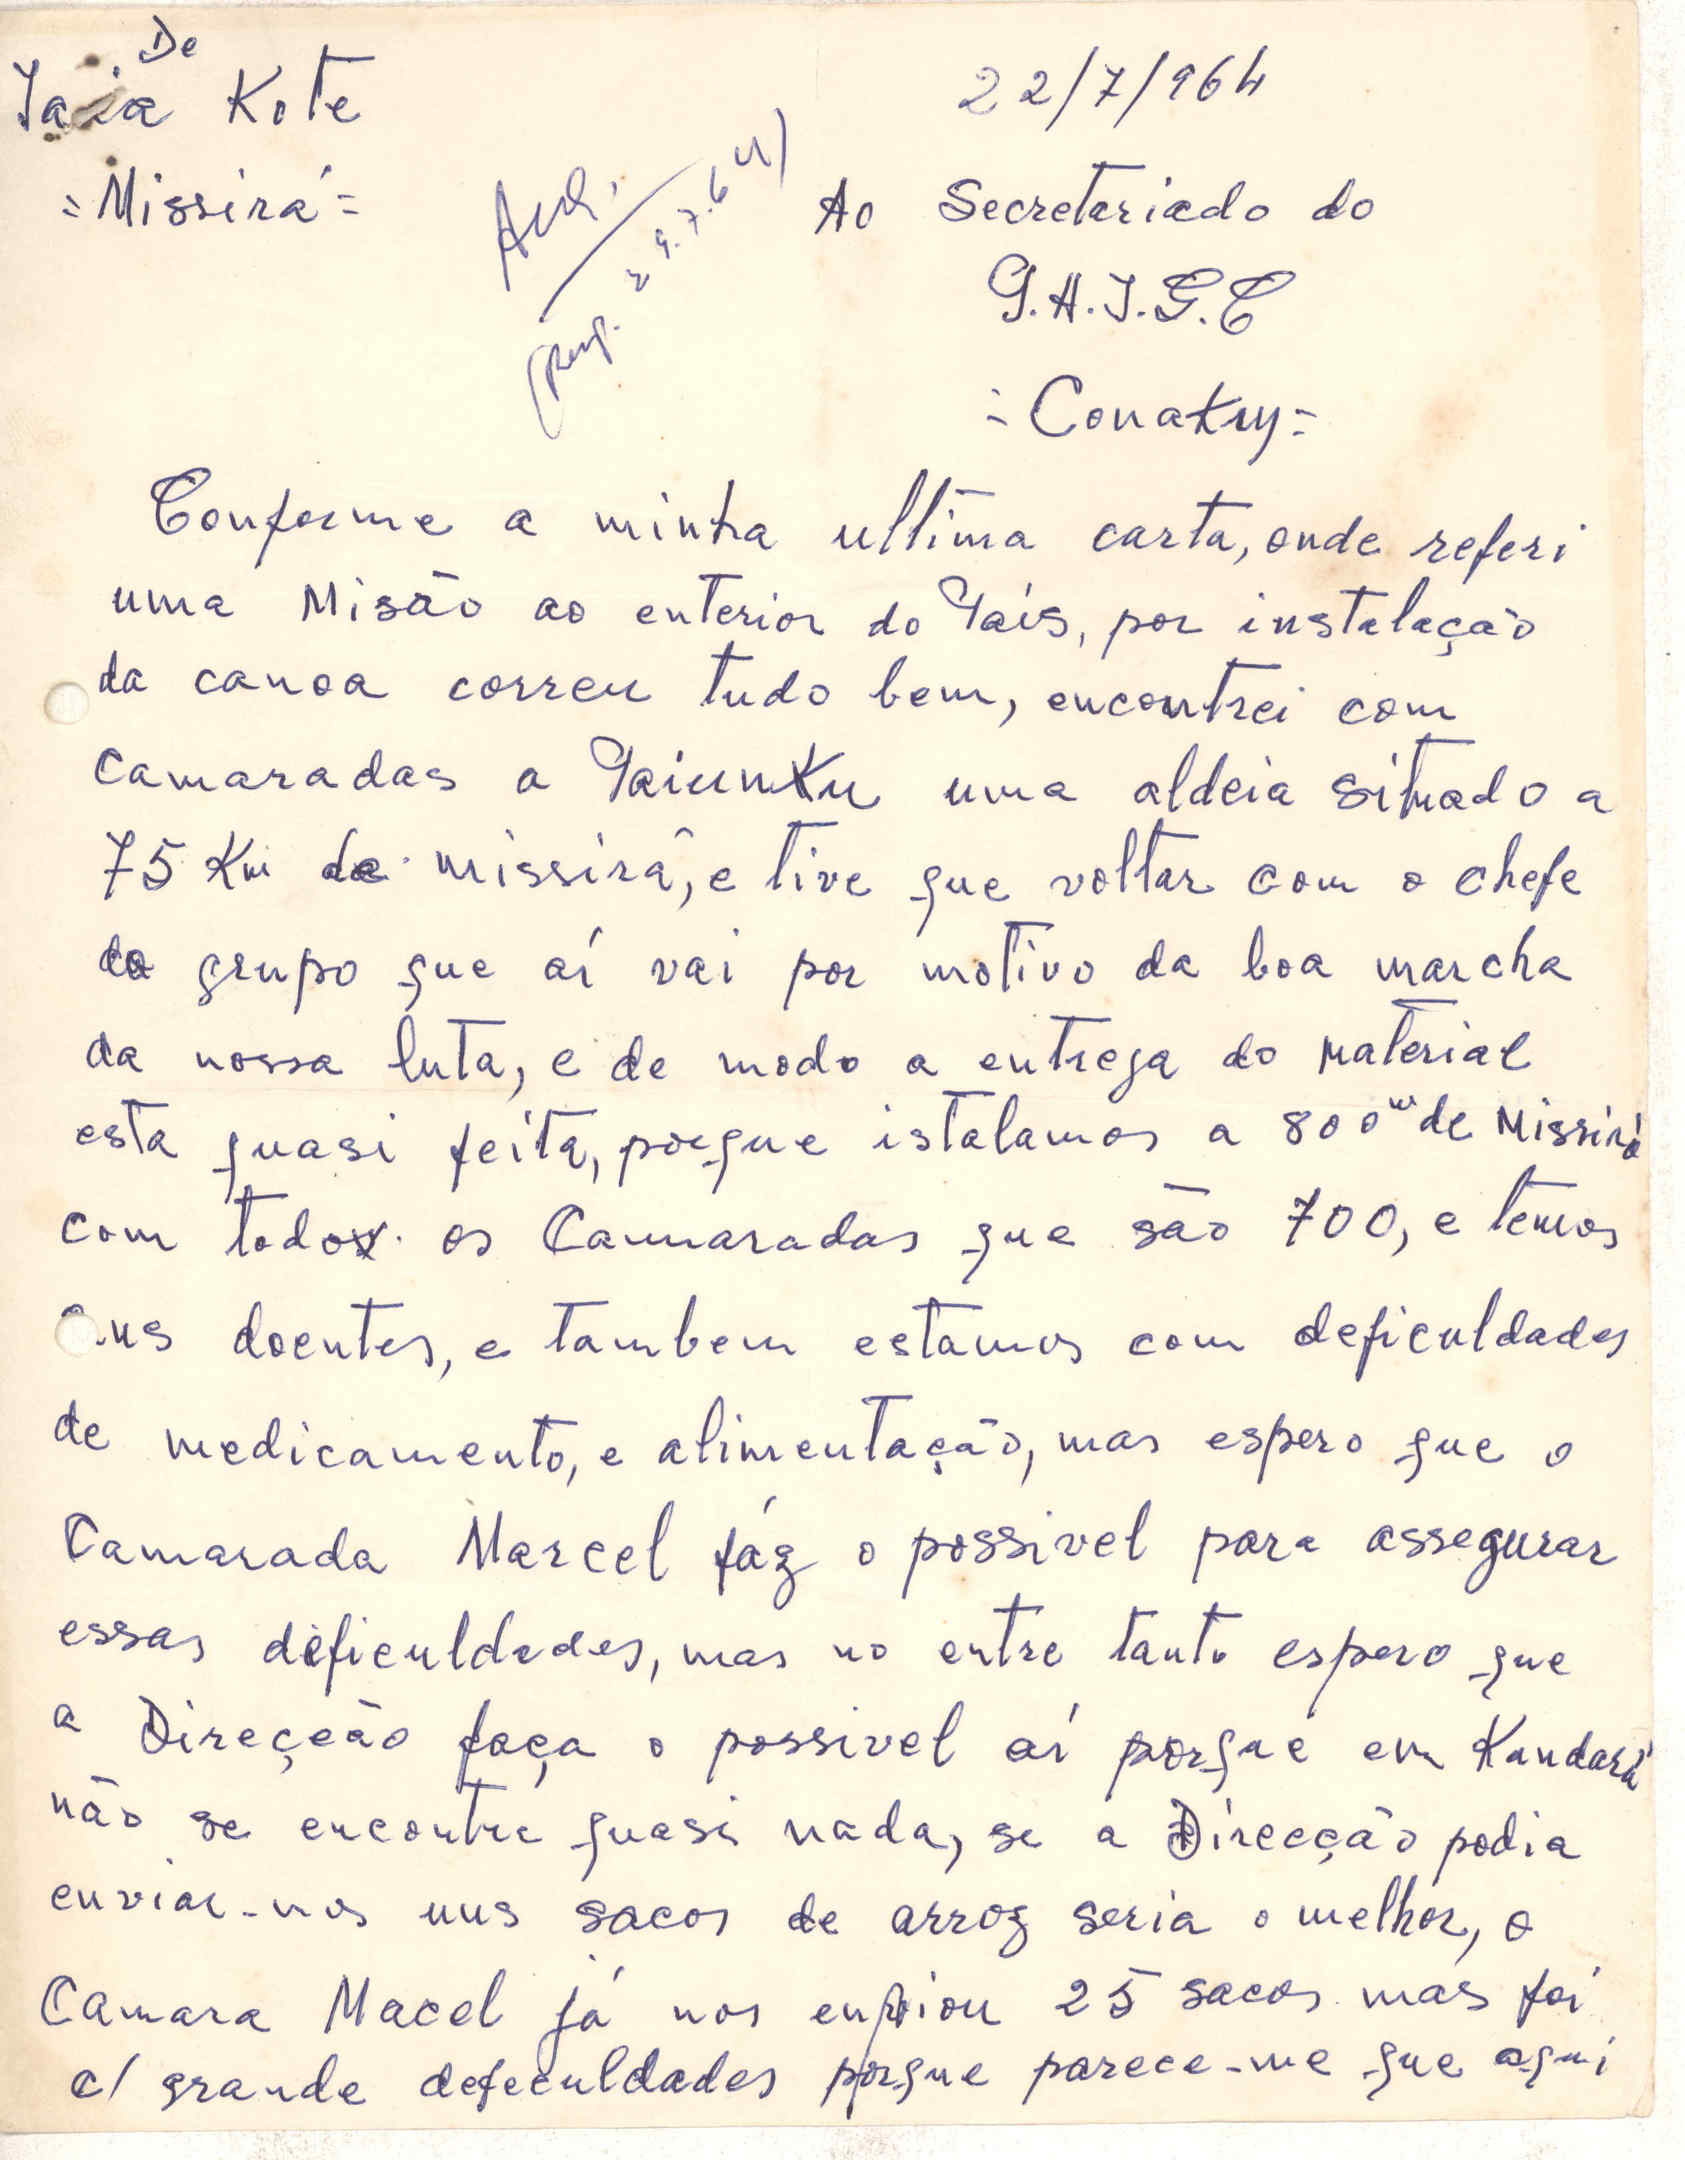 De
Iaia Kote
= Missirá =
22/7/964
29.7.64)
Ao Secretariado do
P.A.I.G.C
= Conakry =
Conforme a minha ultima carta, onde referi
uma Misão ao enterior do País, por instalação
da canoa correu tudo bem, encontrei com
camaradas a PaiunKu uma aldeia situado a
75 Km de missirá, e tive que voltar com o chefe
do grupo que aí vai por motivo da boa marcha
da nossa luta, e de modo a entrega do material
esta quasi feita, porque istalamos a 800m de Missirá
com todos os Cammaradas que são 700, e temos
uns doentes, e tambem estamos com deficuldades
de medicamento, e alimentação, mas espero que o
Camarada Marcel fáz o possivel para assegurar
essas deficuldades, mas no entre tanto espero que
a Direçcão faça o possivel aí porque em Kundará
não se encontra quasi nada, se a Direcção podia
enviar-nos uns sacos de arroz seria o melhor, o
Camara Macel já nos enviou 25 sacos mas foi
c/ grande defeculdades porque parece-me que aqui